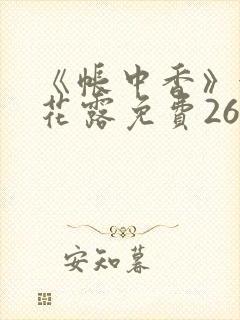 《帐中香》
花露免費26
安知暮